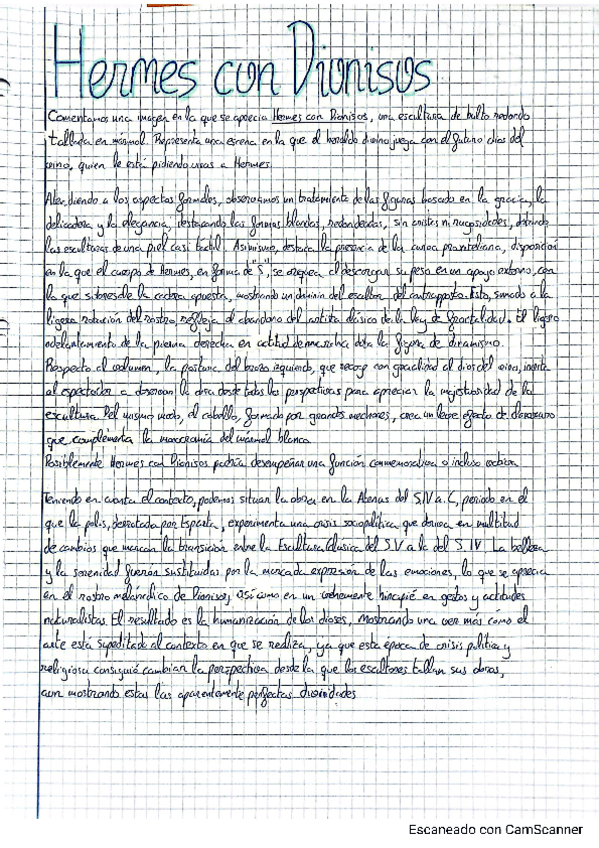 Hermes con Dionisos
Comentamos una imagen en la que se aprecia Hermes con Dionisos, una escultura de bulto redondo
tallada en mármol. Representa una escena en la que el heraldo divino juega con el futuro dios del
vino, quien le está pidiendo uvas a Hermes.
Atendiendo a los aspectos formales, observamos un tratamiento de las figuras basado en la gracia, la
delicadeza y la elegancia, destacando las formas blandas, redondeadas, sin aristas ni rugosidades, dotando
las esculturas de una piel casi táctil. Asimismo, destaca la presencia de la curva praxiteliana, disposición
en la que el cuerpo de Hermes, en forma de "S", se arquea al descargar su peso en un apoyo externo, con
la que sobresale la cadera opuesta, mostrando un dominio del escultor del contrapposto. Esto, sumado a la
ligera rotación del rostro, refleja el abandono del artista clásico de la ley de frontalidad. El ligero
adelantamiento de la pierna derecha en actitud de marcha dota la figura de dinamismo.
Respecto al volumen, la postura del brazo izquierdo, que recoge con gracilidad al dios del vino, invita
al espectador a observar la obra desde todas las perspectivas para apreciar la majestuosidad de la
escultura. Del mismo modo, el cabello, formado por grandes mechones, crea un leve efecto de claroscuro
que complementa la monocromía del mármol blanco.
Posiblemente Hermes con Dionisos podría desempeñar una función conmemorativa o incluso
Teniendo en cuenta el contexto, podemos situar la obra en la Atenas del S.IV a.C, periodo en el
que la polis, derrotada por Esparta, experimenta una crisis sociopolítica que deriva en multitud
de cambios que marcan la transición entre la Escultura Clásica del S.V a la del S.IV. La belleza
y la serenidad fueron sustituidas por la marcada expresión de las emociones, lo que se aprecia
en el rostro melancólico de Dionisos, así como en un vehemente hincapié en gestos y actitudes
naturalistas. El resultado es la humanización de los dioses, mostrando una vez más cómo el
arte está supeditado al contexto en que se realiza, ya que esta época de crisis política y
religiosa consiguió cambiar la perspectiva desde la que los escultores tallan sus obras,
aun mostrando estas las aparentemente perfectas divinidades
Escaneado con CamScanner